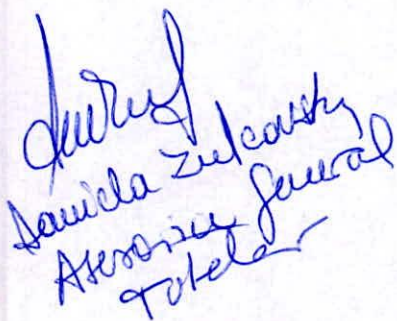 Daniela Zulcovsky
Asesoria General
Tutelar